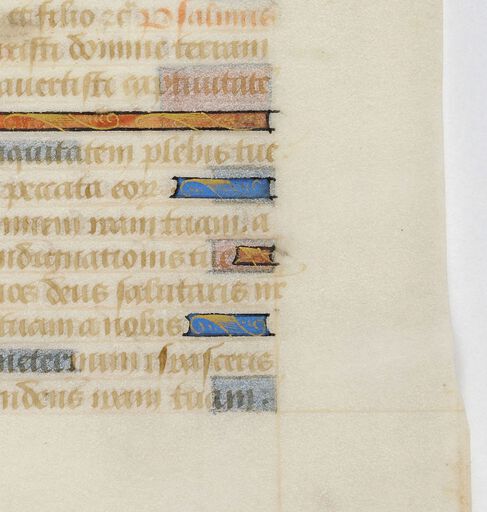 et filio ⁊c̃ Psalmus
isti domine terram
auertisti captiuitatē
iniquitatem plebis tue
peccata eoꝝ
iram tuam. a
indignationis tue
nos deus salutaris nr̄
tuam a nobis
in eternum irasceris
ndens iram tuam.